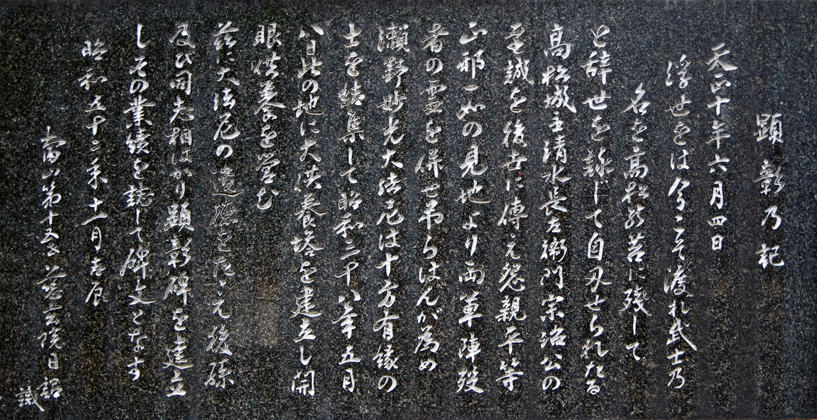 顕彰乃記
天正十年六月四日
浮世をは今こそ渡れ武士乃
名を高松の苔に残して
と辞世を詠じて自刃せられたる
高松城主清水長左衛門宗治公の
至誠を後世に傳え怨親平等
正邪一如の見地より両軍陣歿
者の霊を併せ弔らはんが為め
瀬野妙光大法尼は十方有縁の
士を結集して昭和三十八年五月
八日此の地に大供養塔を建立し開
眼供養を営む
茲に大法尼の遺徳をたたえ後孫
及び同志相はかり顕彰碑を建立
しその業績を誌して碑文となす
昭和五十三年十一月吉辰
當山第十五
日詔
識